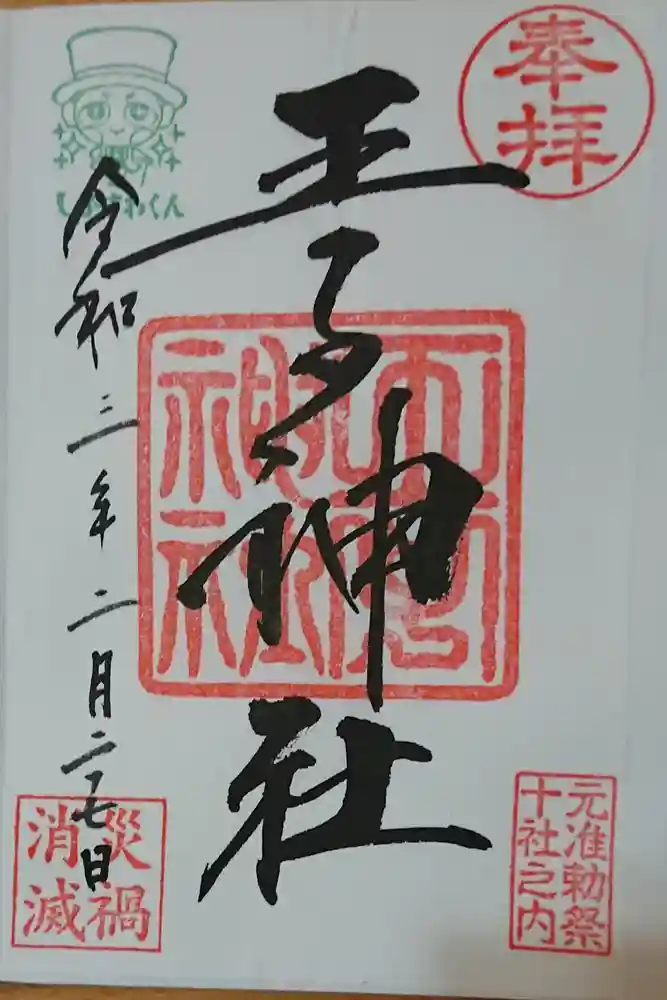 奉拝
王子神社
令和三年二月二十七日
しぶさわくん
元准勅祭
十社之内
災禍
消滅